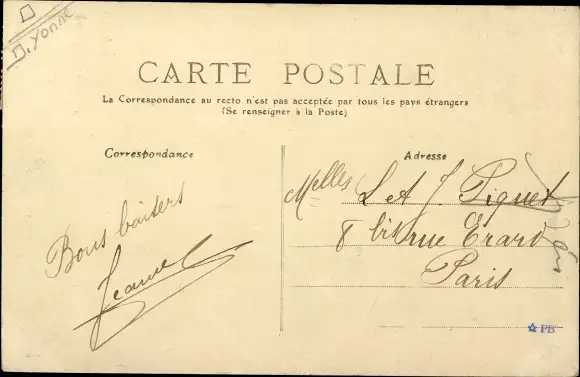 Yonne
CARTE POSTALE
La Correspondance au recto n'est pas acceptée par tous les pays étrangers
(Se renseigner à la Poste)
Correspondance
Adresse
Bons baisers
Jeanne
Melles L et J. Piquet
8 bis rue Erard
Paris
PB